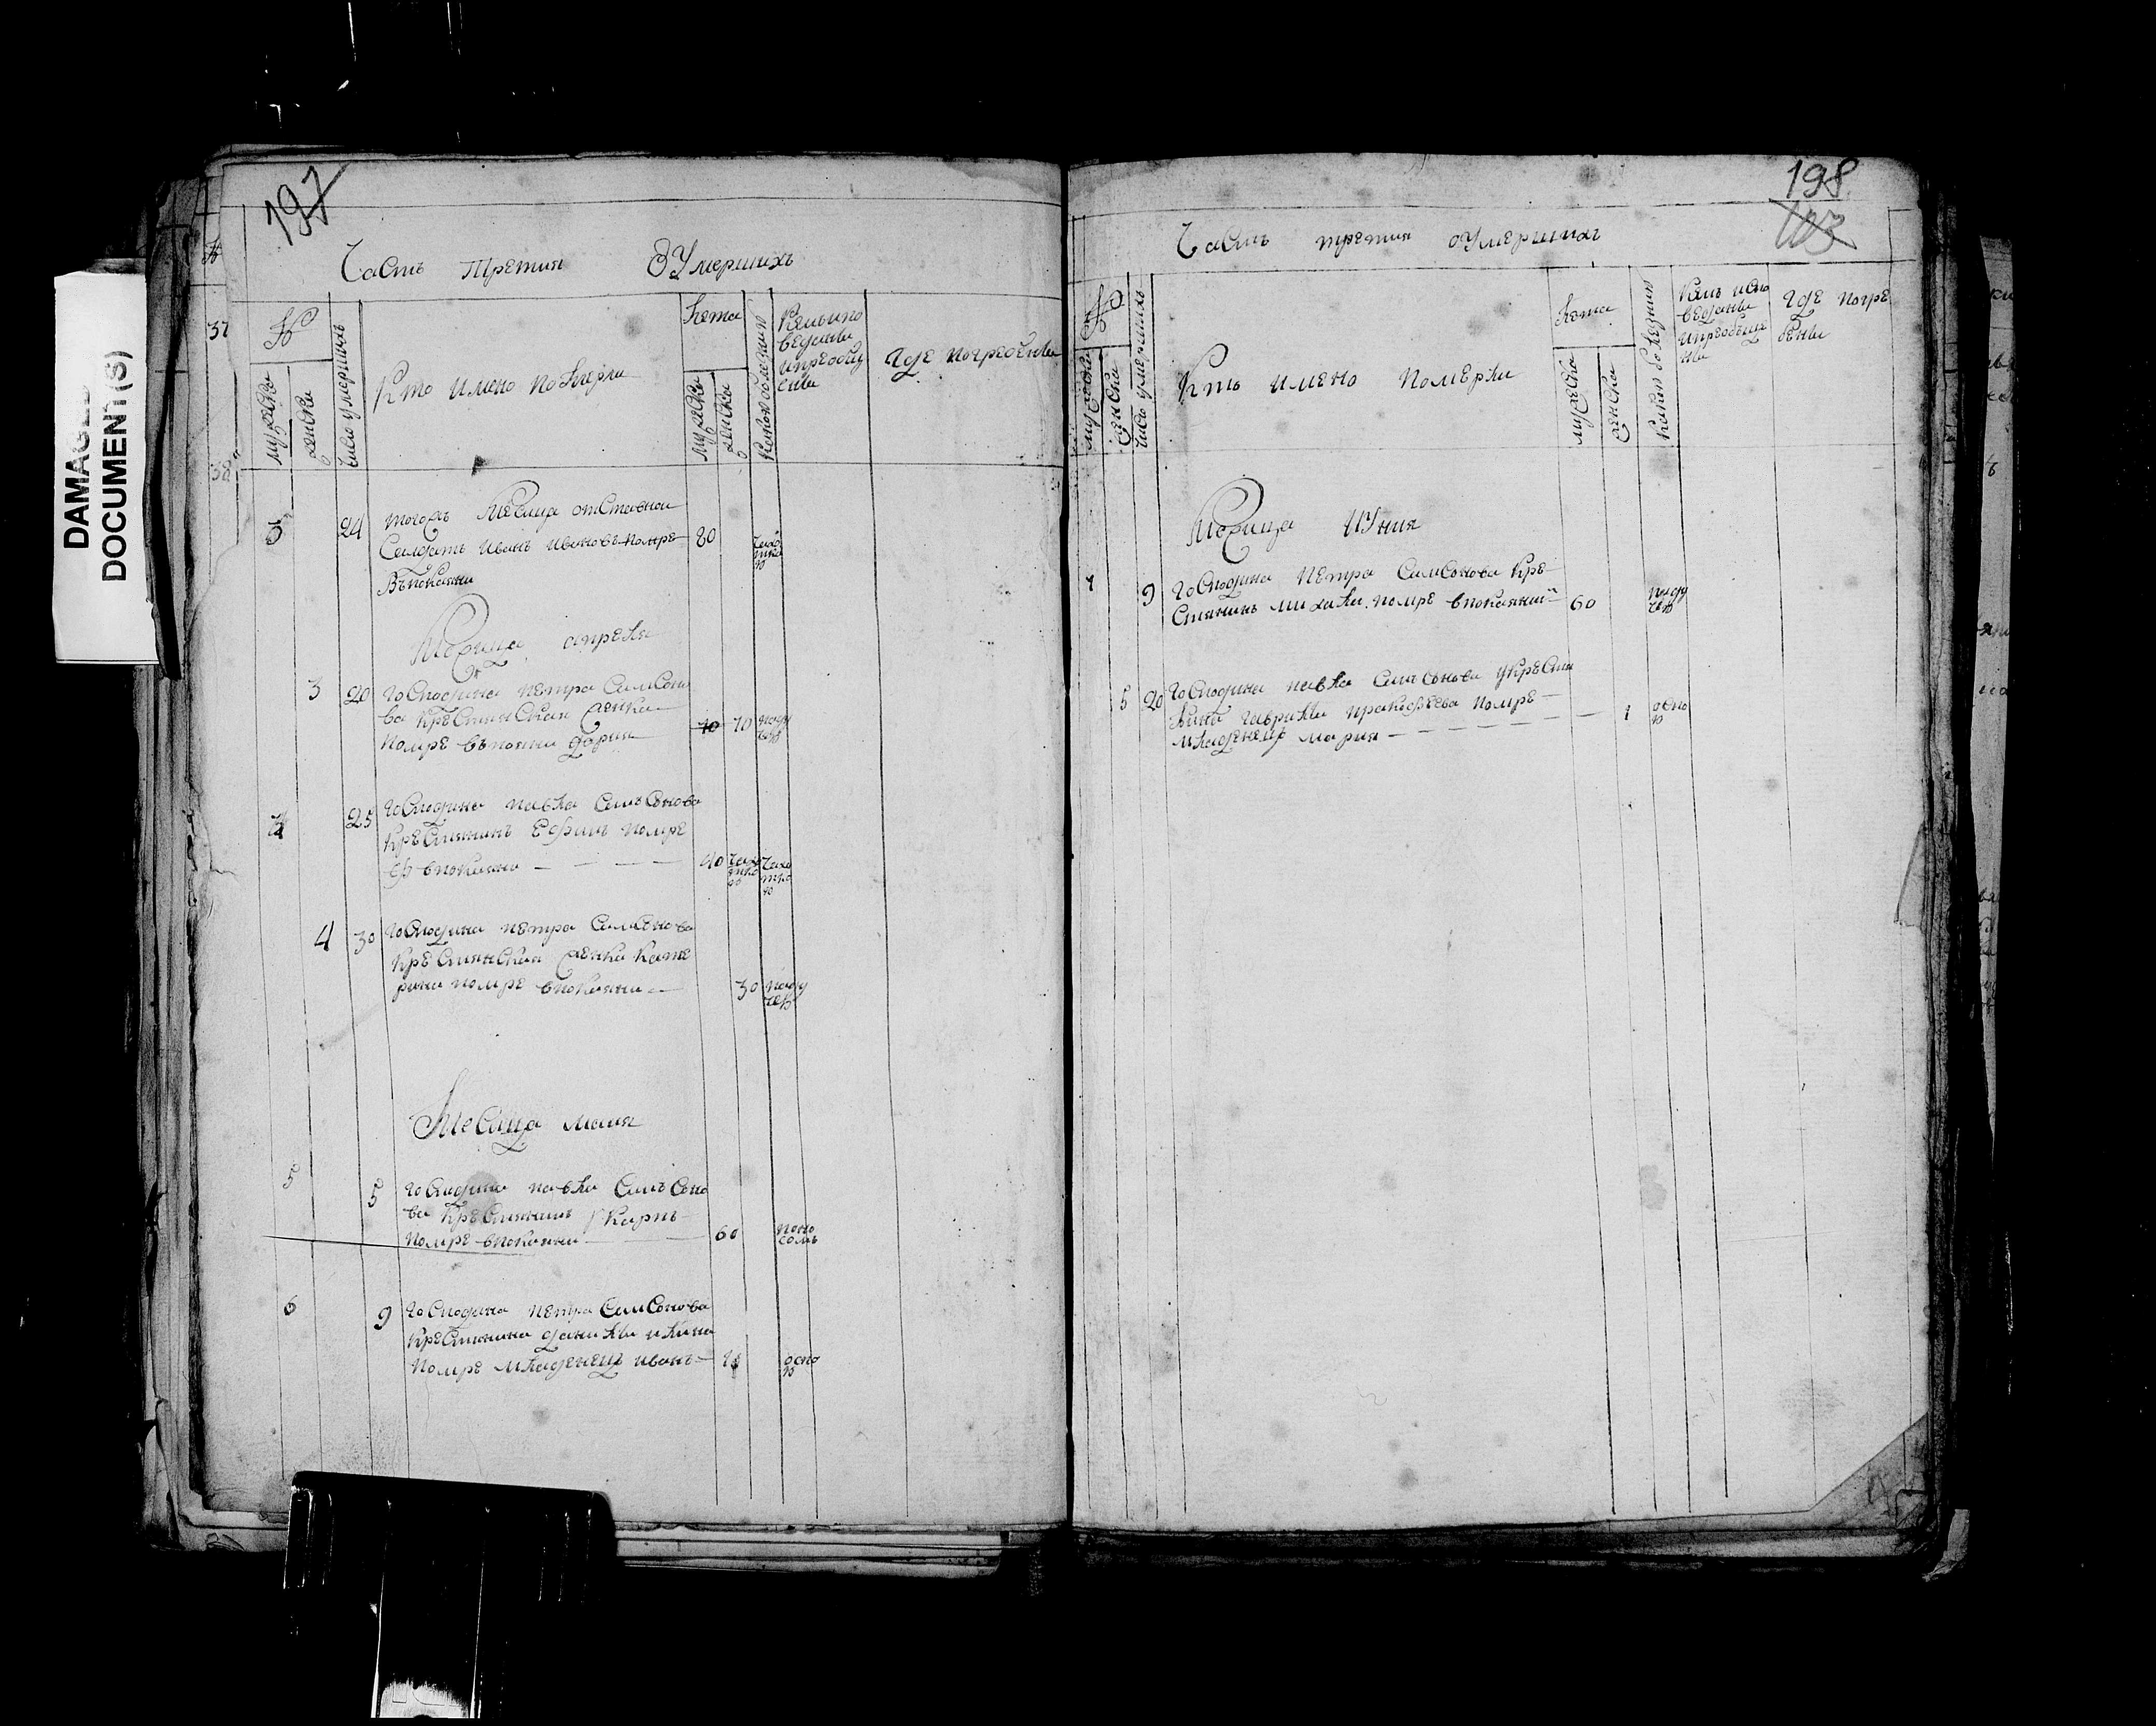 DAMAGED
DOCUMENT(S)
37
38
197
Часть Третия О Умершихъ
№
мужеска
женска
число умершихъ
Кто имено померли
Лета
мужеска
женска
какою болезнию
Кемъ испо
ведани
и преобщ
ени
где погребени
3
24
тогожъ месеца отставной
Салдатъ Иванъ Ивановъ помре
80
чахо
тко
ю
Въ покаяни
Месица апреля
3
20
Господина Петра Самсоно
ва крестьянская женка
помре въ пояни Дарья
70
70
паду
чей
4
25
Господина Павла Самъсонова
крестянинъ Ефимъ помре
в покаяни
40
чахо
тко
ю
чахо
тко
ю
4
30
Господина Петра Самсонова
крестиянская женка Кате
рина помре в покаяни
30
паду
чей
Месица маия
5
5
Господина Павла Самъсоно
ва крестянинъ Карпъ
помре в покаяни
60
поно
сомъ
6
9
Господина Петра Самсонова
крестянина Данилы Илина
помре младенецъ Иванъ
оспо
ю
198
103
Часть третия о умершихъ
№
мужеска
женска
число умерших
Кто имено померли
Лета
мужеска
женска
какою болезнию
Кемъ испо
ведани
и преобще
ни
где погре
бени
Месица Иуния
7
9
Господина Петра Самсонова кре
стянинъ Михаила помре в покаянии
60
паду
чей
5
20
Господина Павла Самъсонова у крестья
нина Гаврилы Пракофеева помре
младенецъ Мария
1
оспо
ю